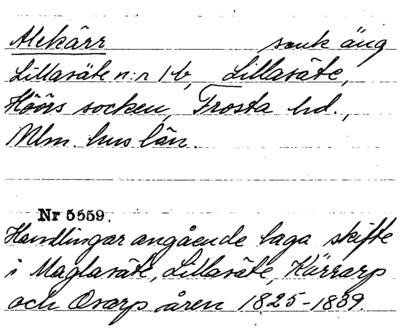 Alekärr sank äng
Lillasäte n:r 1 b, Lillasäte,
Höörs socken, Frosta hd.,
Mlm. hus län.
Nr 5559.
Handlingar angående laga skifte
i Maglasäte, Lillasäte, Kärrarp
och Ovarp åren 1825-1839.